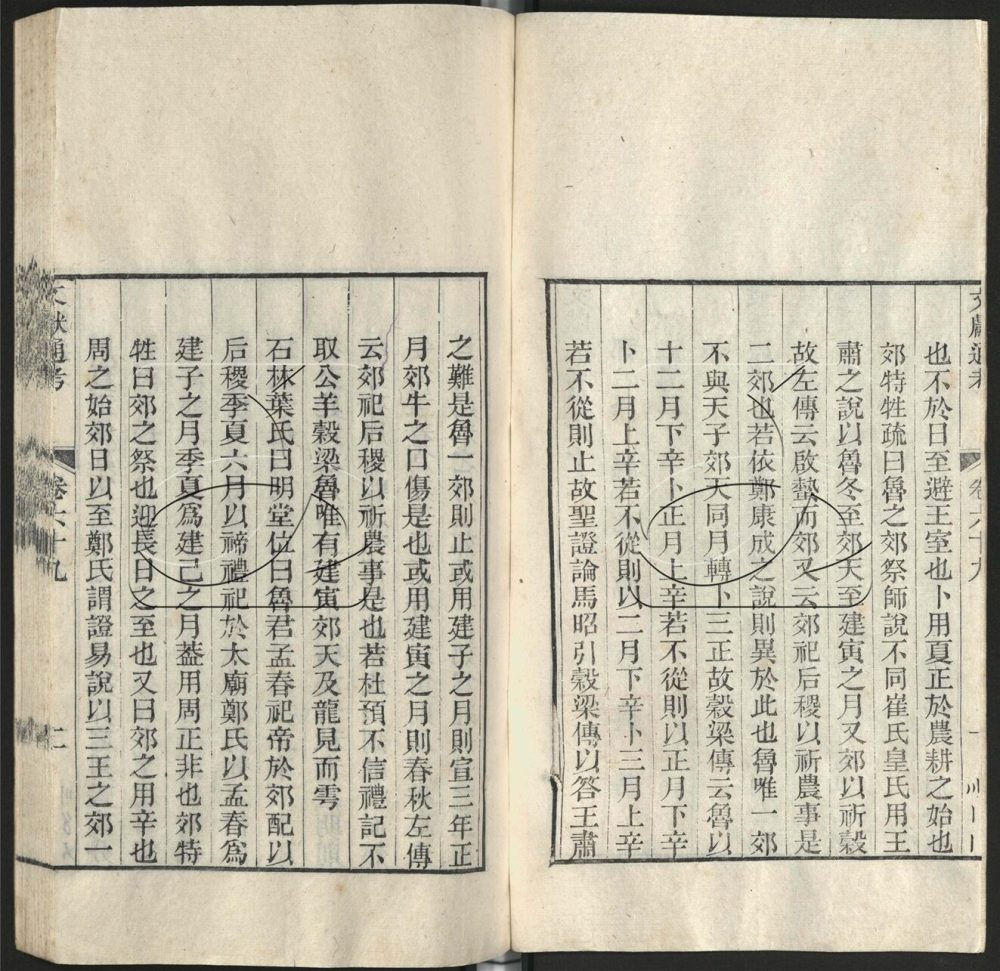 文獻通考
卷六十九
一
也不於日至避王室也卜用夏正於農耕之始也
郊特牲疏曰魯之郊祭師說不同崔氏皇氏用王
肅之說以魯冬至郊天至建寅之月又郊以祈穀
故左傳云啟蟄而郊又云郊祀后稷以祈農事是
二郊也若依鄭康成之說則異於此也魯唯一郊
不與天子郊天同月轉卜三正故穀梁傳云魯以
十二月下辛卜正月上辛若不從則以正月下辛
卜二月上辛若不從則以二月下辛卜三月上辛
若不從則止故聖證論馬昭引穀梁傳以答王肅
之難是魯一郊則止或用建子之月則宣三年正
月郊牛之口傷是也或用建寅之月則春秋左傳
云郊祀后稷以祈農事是也若杜預不信禮記不
取公羊穀梁魯唯有建寅郊天及龍見而雩
石林葉氏曰明堂位曰魯君孟春祀帝於郊配以
后稷季夏六月以禘禮祀於太廟鄭氏以孟春為
建子之月季夏為建巳之月蓋用周正非也郊特
牲曰郊之祭也迎長日之至也又曰郊之用辛也
周之始郊日以至鄭氏謂證易說以三王之郊一
文獻通考
卷六十九
二